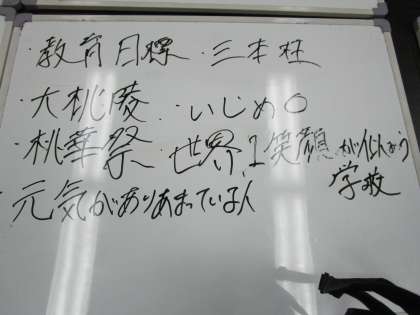 ・教育目標 ・三本柱
・大桃陵 ・いじめ0
・桃華祭 ・世界1笑顔が似合う学校
・元気がありあまっている人